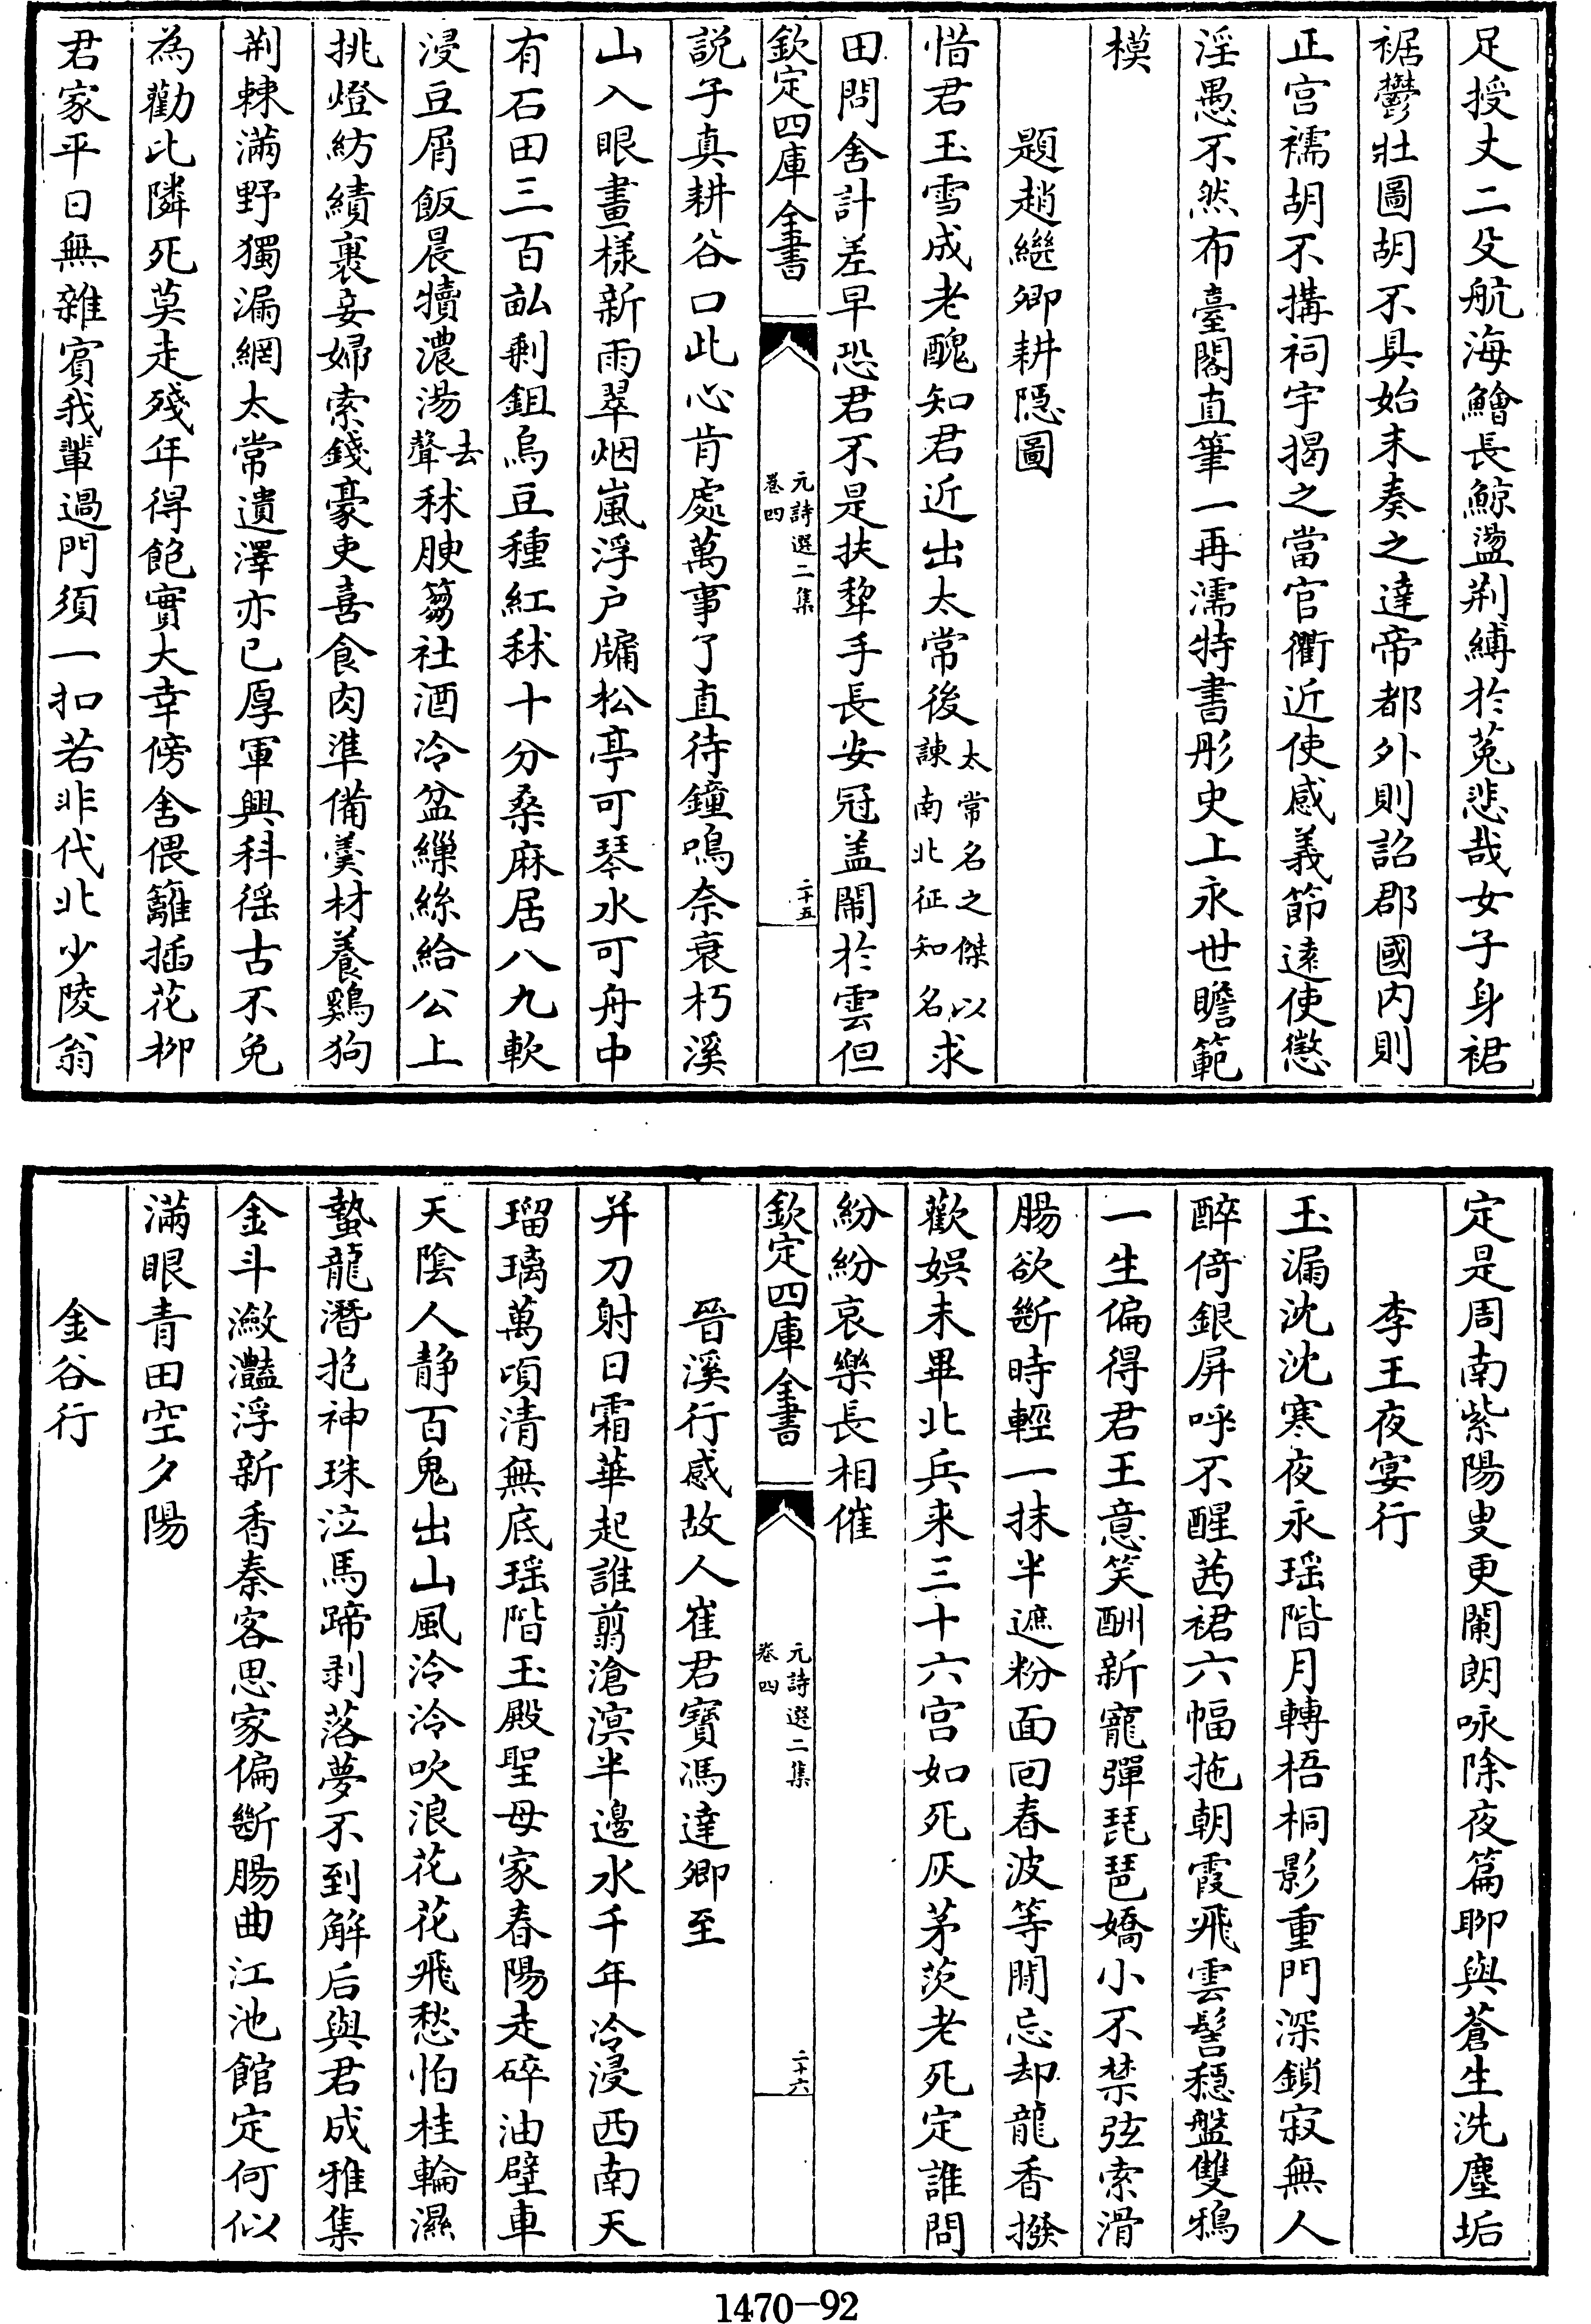 足授丈二殳航海鱠長鯨盪荆縛於菟悲哉女子身裙
裾鬱壯圖胡不具始末奏之達帝都外則詔郡國内則
正宫襦胡不搆祠宇揭之當官衢近使感義節逺使懲
淫愚不然布臺閣直筆一再濡特書彤史上永世瞻範
模
題趙繼卿耕隠圖
惜君玉雪成老醜知君近出太常後太常名之傑以諫南北征知名求
田問舍計差早恐君不是扶犂手長安冠盖鬧於雲但
欽定四庫全書
元詩選二集
卷四
二十五
説子真耕谷口此心肯處萬事了直待鐘鳴奈衰朽溪
山入眼畫様新雨翠烟嵐浮户牖松亭可琴水可舟中
有石田三百畆剩鉏烏豆種紅秫十分桑麻居八九軟
浸豆屑飯晨犢濃湯去聲秫腴蒭社酒冷盆繅絲給公上
挑燈紡績裹妾婦索錢豪吏喜食肉凖備羮材養鷄狗
荆棘滿野獨漏網太常遺澤亦已厚軍興科徭古不免
為勸比隣死莫走殘年得飽實大幸傍舍偎籬插花柳
君家平日無雜賓我輩過門須一扣若非代北少陵翁
定是周南紫陽叟更闌朗咏除夜篇聊與蒼生洗塵垢
李王夜宴行
玉漏沈沈寒夜永瑶階月轉梧桐影重門深鎖寂無人
醉倚銀屏呼不醒茜裙六幅拖朝霞飛雲髻穏盤雙鴉
一生偏得君王意笑酬新寵彈琵琶嬌小不禁弦索滑
腸欲斷時輕一抹半遮粉面回春波等閒忘却龍香撥
歡娱未畢北兵来三十六宫如死灰茅茨老死定誰問
紛紛哀樂長相催
欽定四庫全書
元詩選二集
卷四
二十六
晉溪行感故人崔君寶馮達卿至
并刀射日霜華起誰翦滄溟半邊水千年冷浸西南天
瑠璃萬頃清無底瑶階玉殿聖母家春陽走碎油壁車
天陰人静百鬼出山風泠泠吹浪花花飛愁怕桂輪濕
蟄龍潛抱神珠泣馬蹄剥落夢不到解后與君成雅集
金斗瀲灩浮新香秦客思家偏斷腸曲江池館定何似
滿眼青田空夕陽
金谷行
1470-92